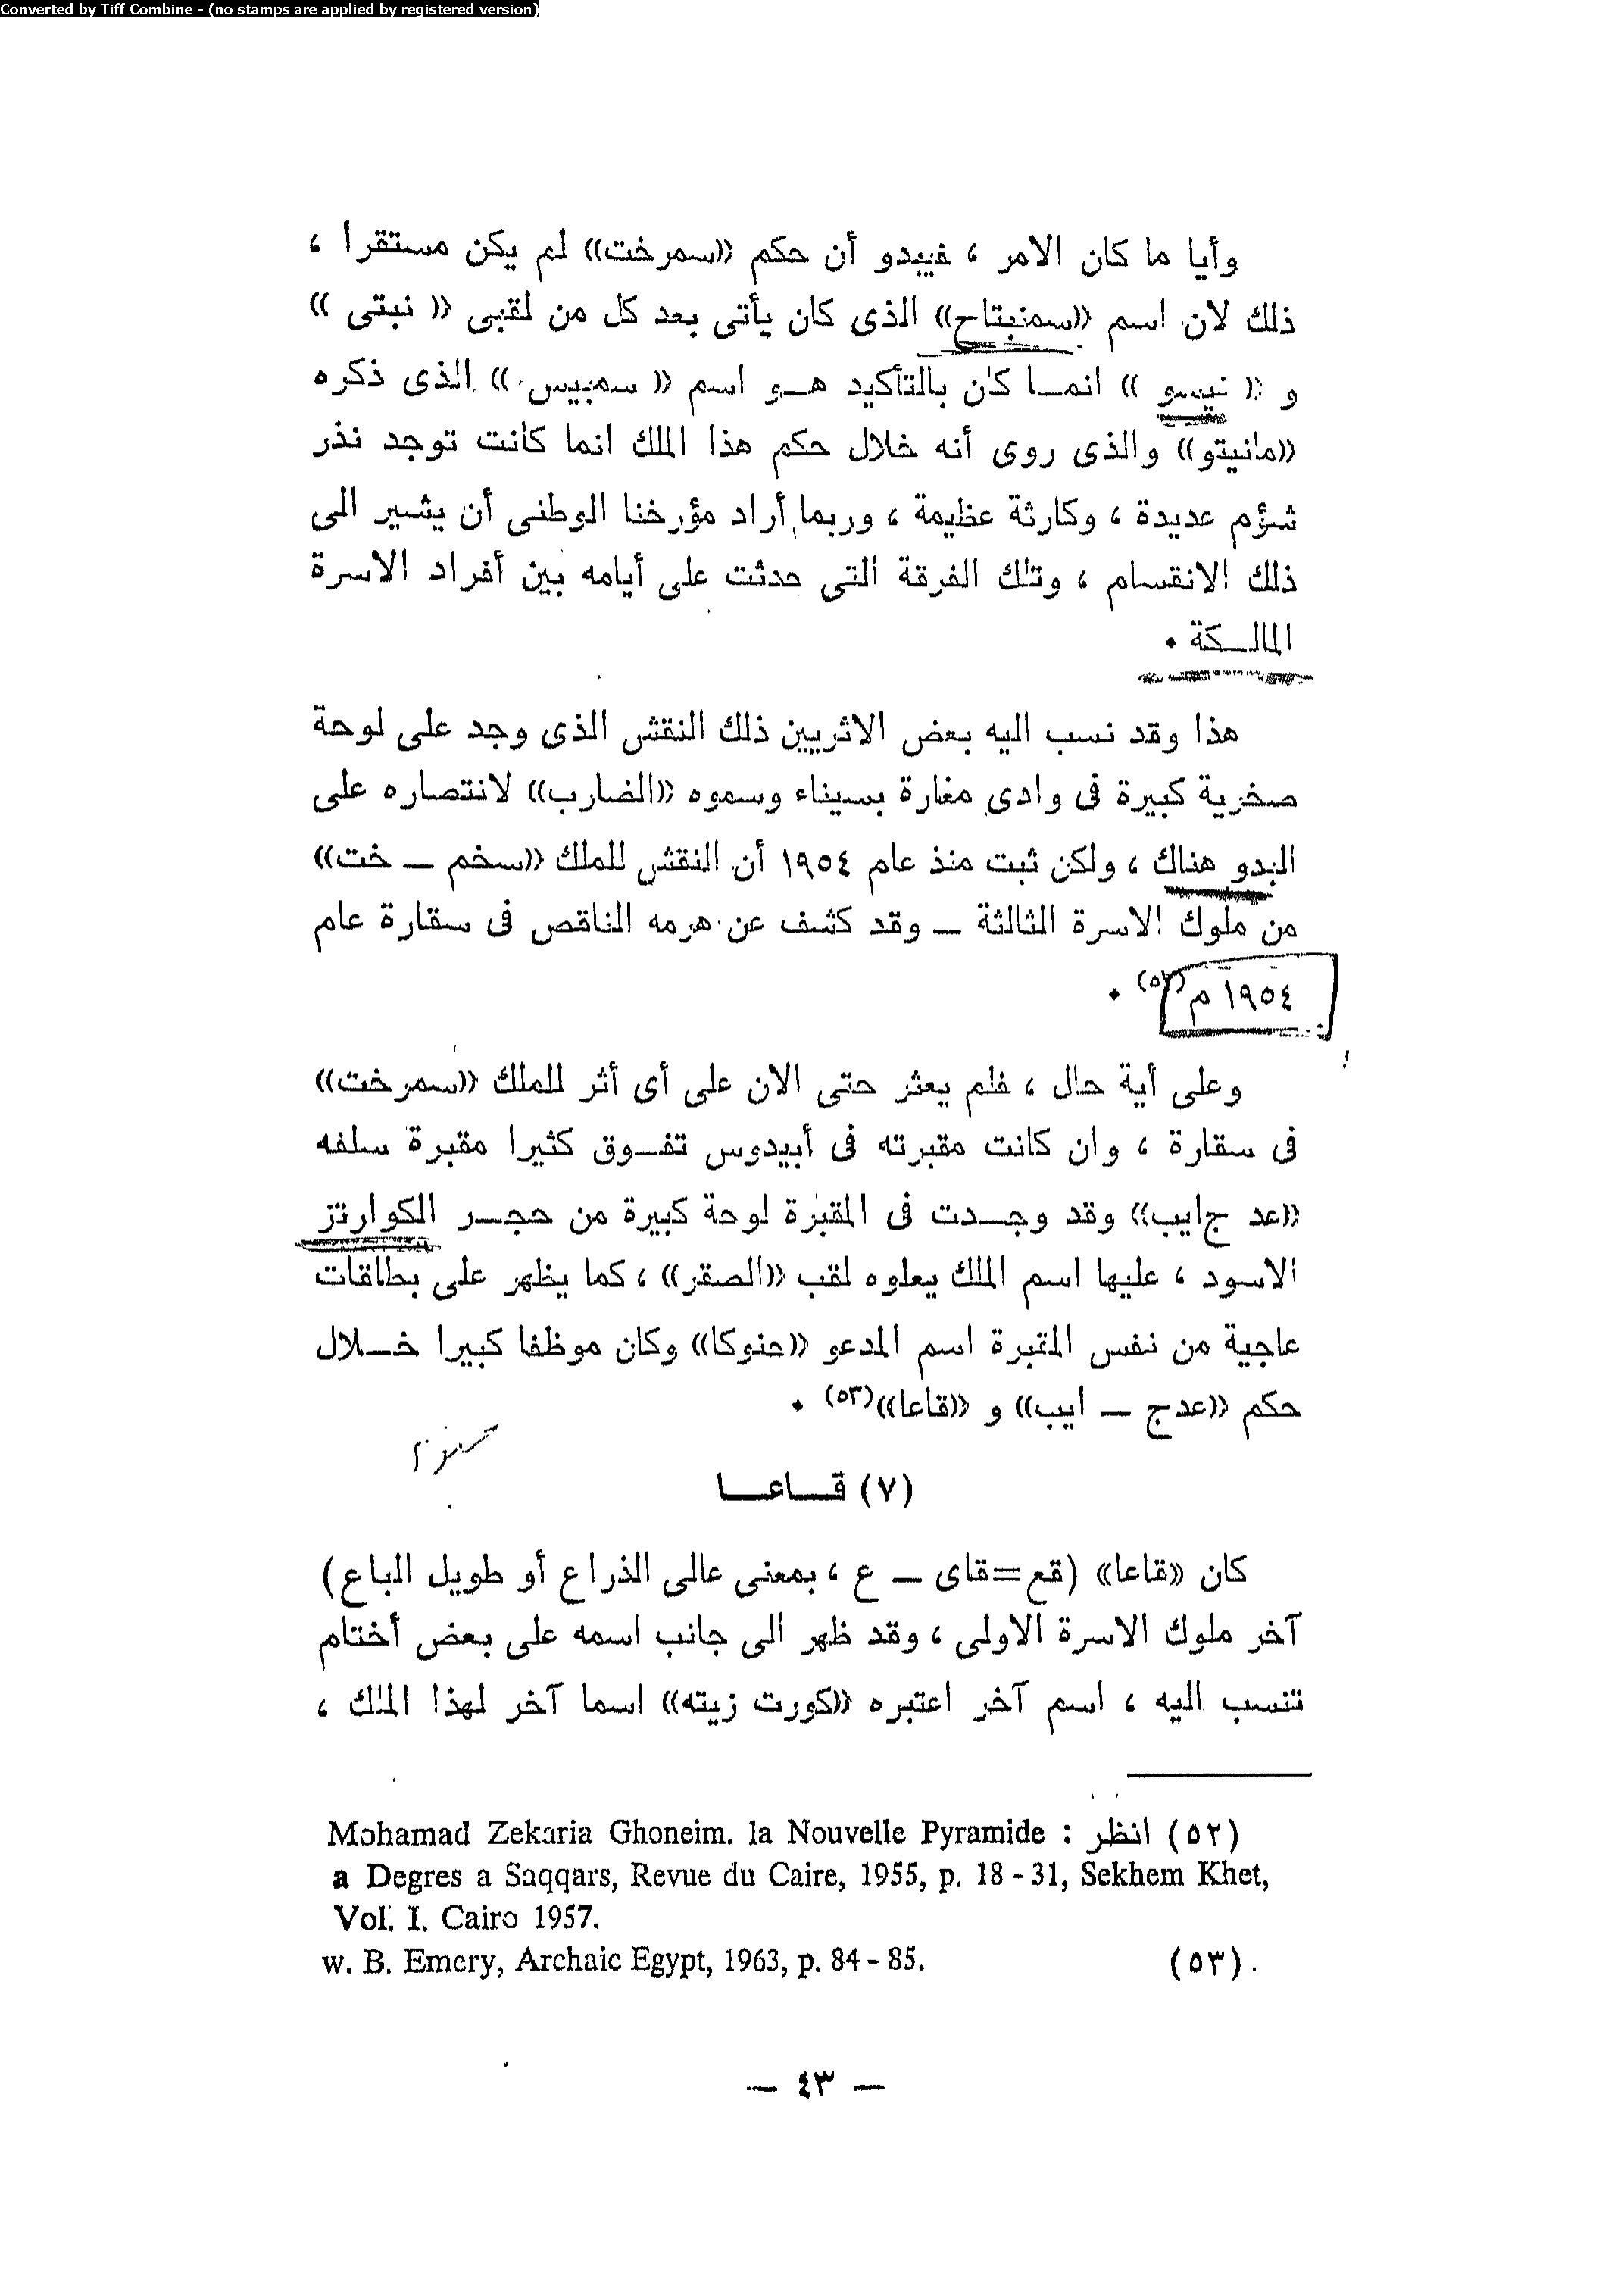 Converted by Tiff Combine - (no stamps are applied by registered version)
وأيا ما كان الامر ، فيبدو أن حكم «سمرخت» لم يكن مستقرا ،
ذلك لان اسم «سمنبتاح» الذى كان يأتى بعد كل من لقبى « نبتى »
و « نيسو » انمــا كان بالتأكيد هــو اسم « سمبيس » الذى ذكره
«مانيتو» والذى روى أنه خلال حكم هذا الملك انما كانت توجد نذر
شؤم عديدة ، وكارثة عظيمة ، وربما أراد مؤرخنا الوطنى أن يشير الى
ذلك الانقسام ، وتلك الفرقة التى حدثت على أيامه بين أفراد الاسرة
المالــكة .
هذا وقد نسب اليه بعض الاثريين ذلك النقش الذى وجد على لوحة
صخرية كبيرة فى وادى مغارة بسيناء وسموه «الضارب» لانتصاره على
البدو هناك ، ولكن ثبت منذ عام ١٩٥٤ أن النقش للملك «سخم — خت»
من ملوك الاسرة الثالثة — وقد كشف عن هرمه الناقص فى سقارة عام
١٩٥٤ م (٥٢) .
وعلى أية حال ، فلم يعثر حتى الان على أى أثر للملك «سمرخت»
فى سقارة ، وان كانت مقبرته فى أبيدوس تفــوق كثيرا مقبرة سلفه
«عد ج ايب» وقد وجــدت فى المقبرة لوحة كبيرة من حجــر الكوارتز
الاسود ، عليها اسم الملك يعلوه لقب «الصقر» ، كما يظهر على بطاقات
عاجية من نفس المقبرة اسم المدعو «حنوكا» وكان موظفا كبيرا خــلال
حكم «عدج — ايب» و «قاعا»(٥٣) .
(٧) قــاعــا
كان «قاعا» (قع=قاى — ع ، بمعنى عالى الذراع أو طويل الباع)
آخر ملوك الاسرة الاولى ، وقد ظهر الى جانب اسمه على بعض أختام
تنسب اليه ، اسم آخر اعتبره «كورت زيته» اسما آخر لهذا الملك ،
(٥٢) انظر : Mohamad Zekaria Ghoneim. la Nouvelle Pyramide
a Degres a Saqqars, Revue du Caire, 1955, p. 18 - 31, Sekhem Khet,
Vol. I. Cairo 1957.
(٥٣) w. B. Emery, Archaic Egypt, 1963, p. 84 - 85.
— ٤٣ —